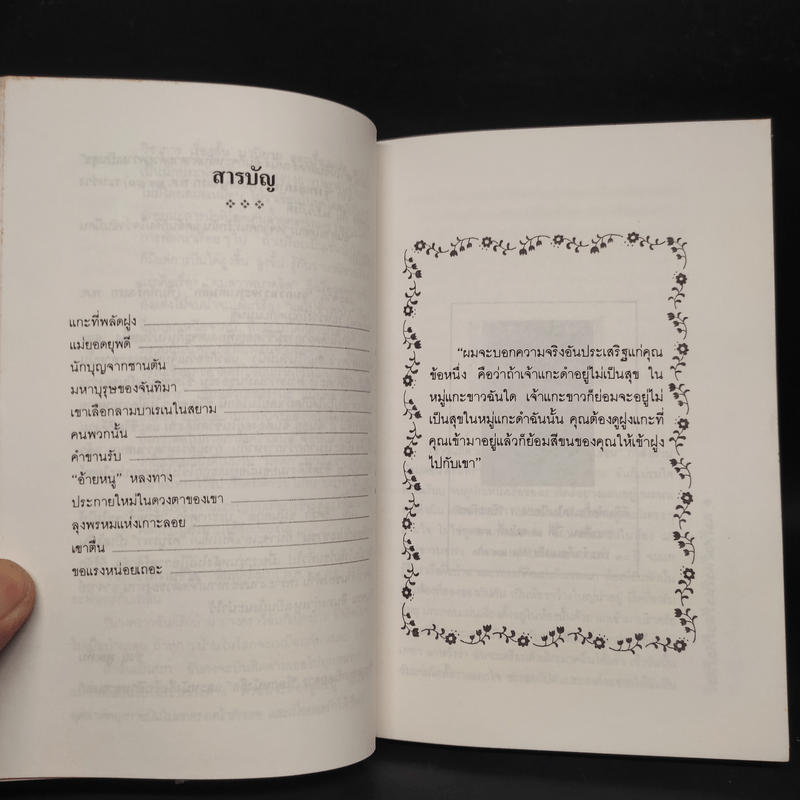 สารบัญ
แกะที่พลัดฝูง
แม่ยอดยุพดี
นักบุญจากชานตัน
มหาบุรุษของจันทิมา
เขาเลือกลามบาเรเนในสยาม
คนพวกนั้น
คำขานรับ
“อ้ายหนู” หลงทาง
ประกายใหม่ในดวงตาของเขา
ลุงพรหมแห่งเกาะลอย
เขาตื่น
ขอแรงหน่อยเถอะ
“ผมจะบอกความจริงอันประเสริฐแก่คุณ
ข้อหนึ่ง คือว่าถ้าเจ้าแกะดำอยู่ไม่เป็นสุข ใน
หมู่แกะขาวฉันใด เจ้าแกะขาวก็ย่อมจะอยู่ไม่
เป็นสุขในหมู่แกะดำฉันนั้น คุณต้องดูฝูงแกะที่
คุณเข้ามาอยู่แล้วก็ย้อมสีขนของคุณให้เข้าฝูง
ไปกับเขา”